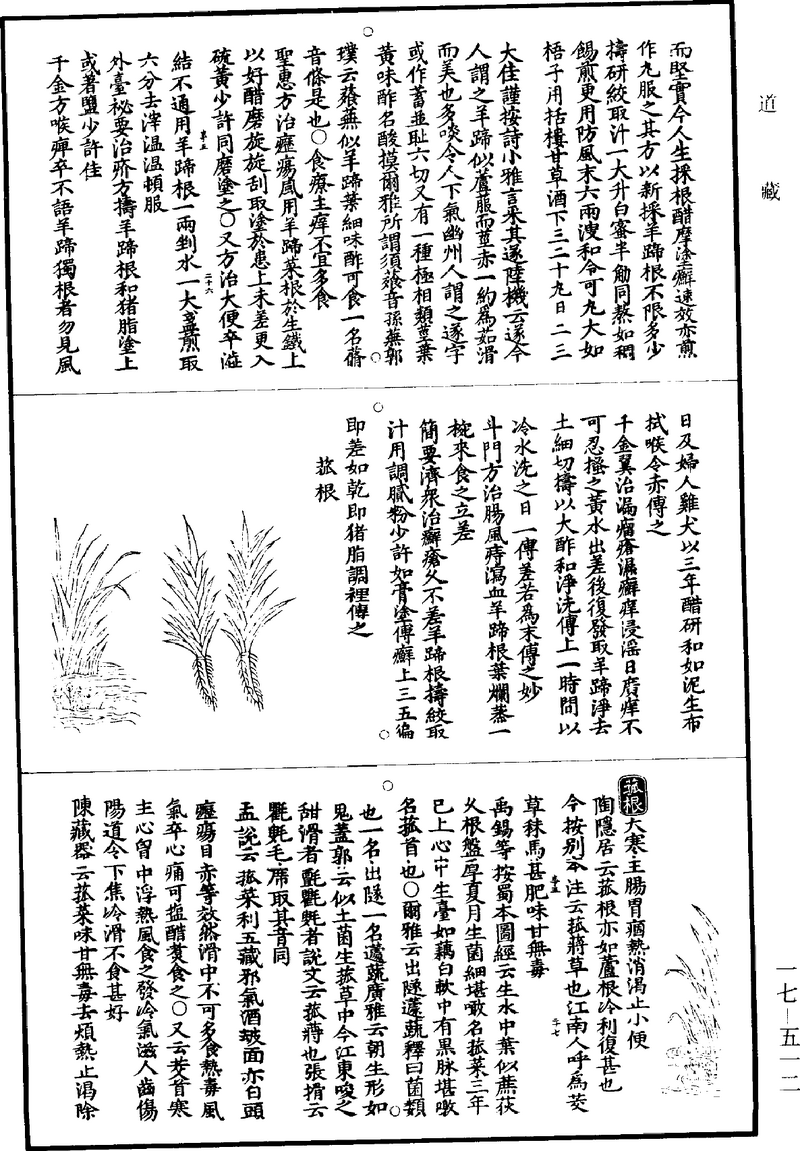 道藏
而堅實今人生採根醋摩塗癬速效亦煎
作丸服之其方以新採羊蹄根不限多少
擣研絞取汁一大升白蜜半勉同熬如稠
餳煎更用防風末六兩溲和令可丸大如
梧子用括樓甘草酒下三二十丸日二三
大佳謹按詩小雅言采其遂陸機云遂今
人謂之羊蹄似蘆菔而莖赤一約為茹滑
而美也多啖令人下氣幽州人謂之遂字
或作蓄並恥六切又有一種極相類莖葉
黃味酢名酸摸爾雅所謂須薞音孫蕪郭
璞云薞蕪似羊蹄葉細味酢可食一名蓨
音條是也○食療主痒不宜多食
聖惠方治癧瘍風用羊蹄菜根於生鐵上
以好醋磨旋旋刮取塗於患上未差更入
硫黃少許同磨塗之○又方治大便卒澁
結不通用羊蹄根一兩剉水一大盞煎取
六分去滓溫溫頓服
外臺祕要治疥方擣羊蹄根和猪脂塗上
或著鹽少許佳
千金方喉痺卒不語羊蹄獨根者勿見風
日及婦人雞犬以三年醋研和如泥生布
拭喉令赤傅之
千金翼治漏瘤瘡濕癬痒浸淫日廣痒不
可忍搔之黃水出差後復發取羊蹄淨去
土細切擣以大酢和淨洗傅上一時間以
冷水洗之日一傅差若為末傅之妙
斗門方治腸風痔瀉血羊蹄根葉爛蒸一
椀來食之立差
簡要濟衆治癬瘡久不差羊蹄根擣絞取
汁用調膩粉少許如膏塗傅癬上三五徧
即差如乾即猪脂調裡傅之
菰根
菰根大寒主腸胃痼熱消渴止小便
陶隱居云菰根亦如蘆根冷利復甚也
今按别本注云菰蔣草也江南人呼為茭
草秣馬甚肥味甘無毒
禹錫等按蜀本圖經云生水中葉似蔗荻
久根盤厚夏月生菌細堪噉名菰菜三年
已上心中生臺如藕白軟中有黑脉堪噉
名菰首也○爾雅云出隧蘧蔬釋曰菌類
也一名出隧一名蘧蔬廣雅云朝生形如
鬼蓋郭云似土菌生菰草中今江東啖之
甜滑者氈氍毹者說文云菰蔣也張揖云
氍毹毛席取其音同
孟說云菰菜利五藏邪氣酒皶面赤白頭
癧瘍目赤等效然滑中不可多食熱毒風
氣卒心痛可鹽醋煑食之○又云茭首寒
主心胷中浮熱風食之發冷氣滋人齒傷
陽道令下焦冷滑不食甚好
陳藏器云菰菜味甘無毒去煩熱止渴除
一七—五一二